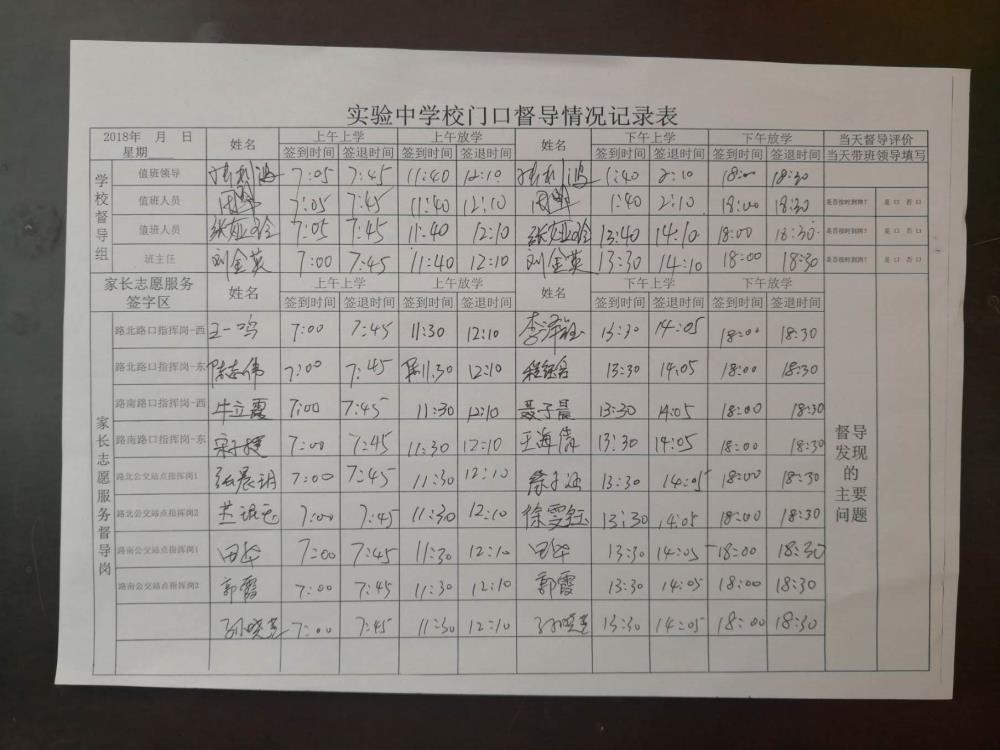 实验中学校门口督导情况记录表
2018年 月 日 姓名 上午上学 上午放学 姓名 下午上学 下午放学 当天督导评价
星期 签到时间 签退时间 签到时间 签退时间 签到时间 签退时间 签到时间 签退时间 当天带班领导填写
学校督导组
值班领导 7:05 7:45 11:40 12:10 1:40 2:10 18:00 18:30
值班人员 7:05 7:45 11:40 12:10 1:40 2:10 18:00 18:30 是否按时到岗? 是 口 否 口
值班人员 7:05 7:45 11:40 12:10 13:40 14:10 18:00 18:30 是否按时到岗? 是 口 否 口
班主任 刘金英 7:00 7:45 11:40 12:10 刘金英 13:30 14:10 18:00 18:30 是否按时到岗? 是 口 否 口
家长志愿服务 姓名 上午上学 上午放学 姓名 下午上学 下午放学
签字区 签到时间 签退时间 签到时间 签退时间 签到时间 签退时间 签到时间 签退时间
家长志愿服务督导岗
路北路口指挥岗-西 王一鸣 7:00 7:45 11:30 12:10 13:30 14:05 18:00 18:30
路北路口指挥岗-东 陈志伟 7:00 7:45 11:30 12:10 13:30 14:05 18:00 18:30
路南路口指挥岗-西 牛立霞 7:00 7:45 11:30 12:10 聂子晨 13:30 14:05 18:00 18:30
路南路口指挥岗-东 7:00 7:45 11:30 12:10 王海倩 13:30 14:05 18:00 18:30
路北公交站点指挥岗1 张晨玥 7:00 7:45 11:30 12:10 13:30 14:05 18:00 18:30
路北公交站点指挥岗2 7:00 7:45 11:30 12:10 徐雯钰 13:30 14:05 18:00 18:30
路南公交站点指挥岗1 田华 7:00 7:45 11:30 12:10 田华 13:30 14:05 18:00 18:30
路南公交站点指挥岗2 郭霞 7:00 7:45 11:30 12:10 郭霞 13:30 14:05 18:00 18:30
孙晓亮 7:00 7:45 11:30 12:10 孙晓亮 13:30 14:05 18:00 18:30
督导
发现
的
主要
问题